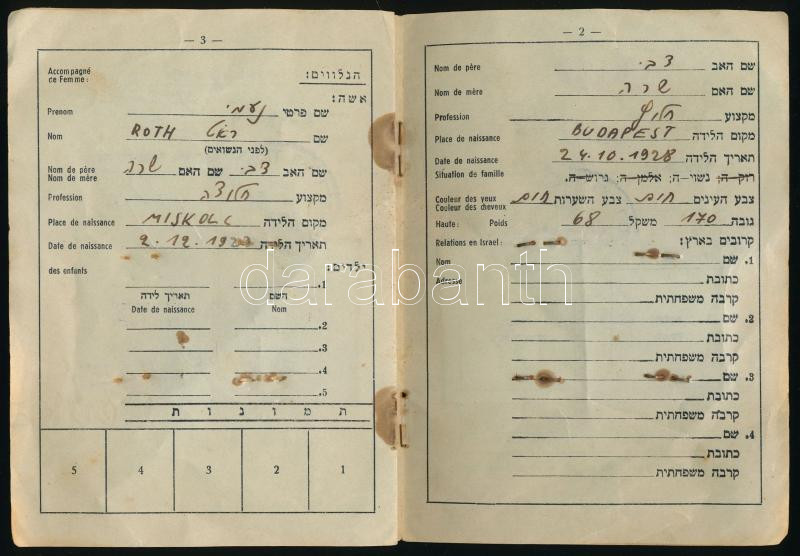 — 3 —
Accompagné
de Femme: הנלווים:
אשה:
Prenom נעמי שם פרטי
Nom ROTH ראט שם
(לפני הנשואים)
Nom de père
Nom de mère שם האב צבי שם האם שרה
Profession חלוצה מקצוע
Place de naissance MISKOLC מקום הלידה
Date de naissance תאריך הלידה
des enfants ילדים:
.1
תאריך לידה השם
Date de naissance Nom
.2
.3
.4
.5
ת מ ו נ ו ת
5 4 3 2 1
— 2 —
Nom de père צבי שם האב
Nom de mère שרה שם האם
Profession חלוץ מקצוע
Place de naissance BUDAPEST מקום הלידה
Date de naissance 24.10.1928 תאריך הלידה
Situation de famille רוק–ה; נשוי–ה; אלמן–ה; גרוש–ה.
Couleur des yeux
Couleur des cheveux צבע העינים חום צבע השערות חום
Haute: Poids גובה 170 משקל 68
Relations en Israel: קרובים בארץ:
Nom .1 שם
Adresse כתובת
קרבה משפחתית
.2 שם
כתובת
קרבה משפחתית
.3 שם
כתובת
קרבה משפחתית
.4 שם
כתובת
קרבה משפחתית
darabanth